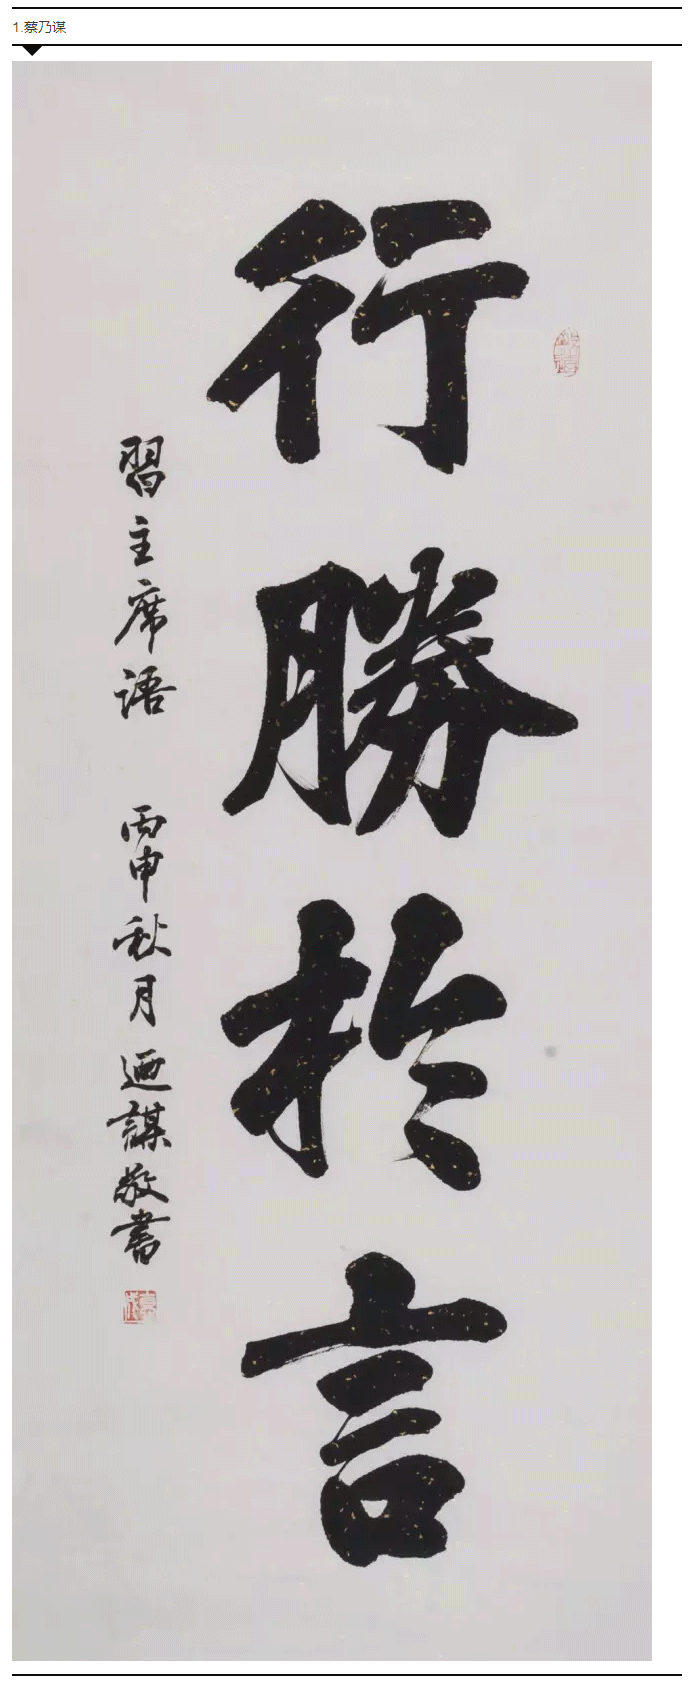 1.蔡乃谋
行勝於言
習主席语 丙申秋月迺謀敬書